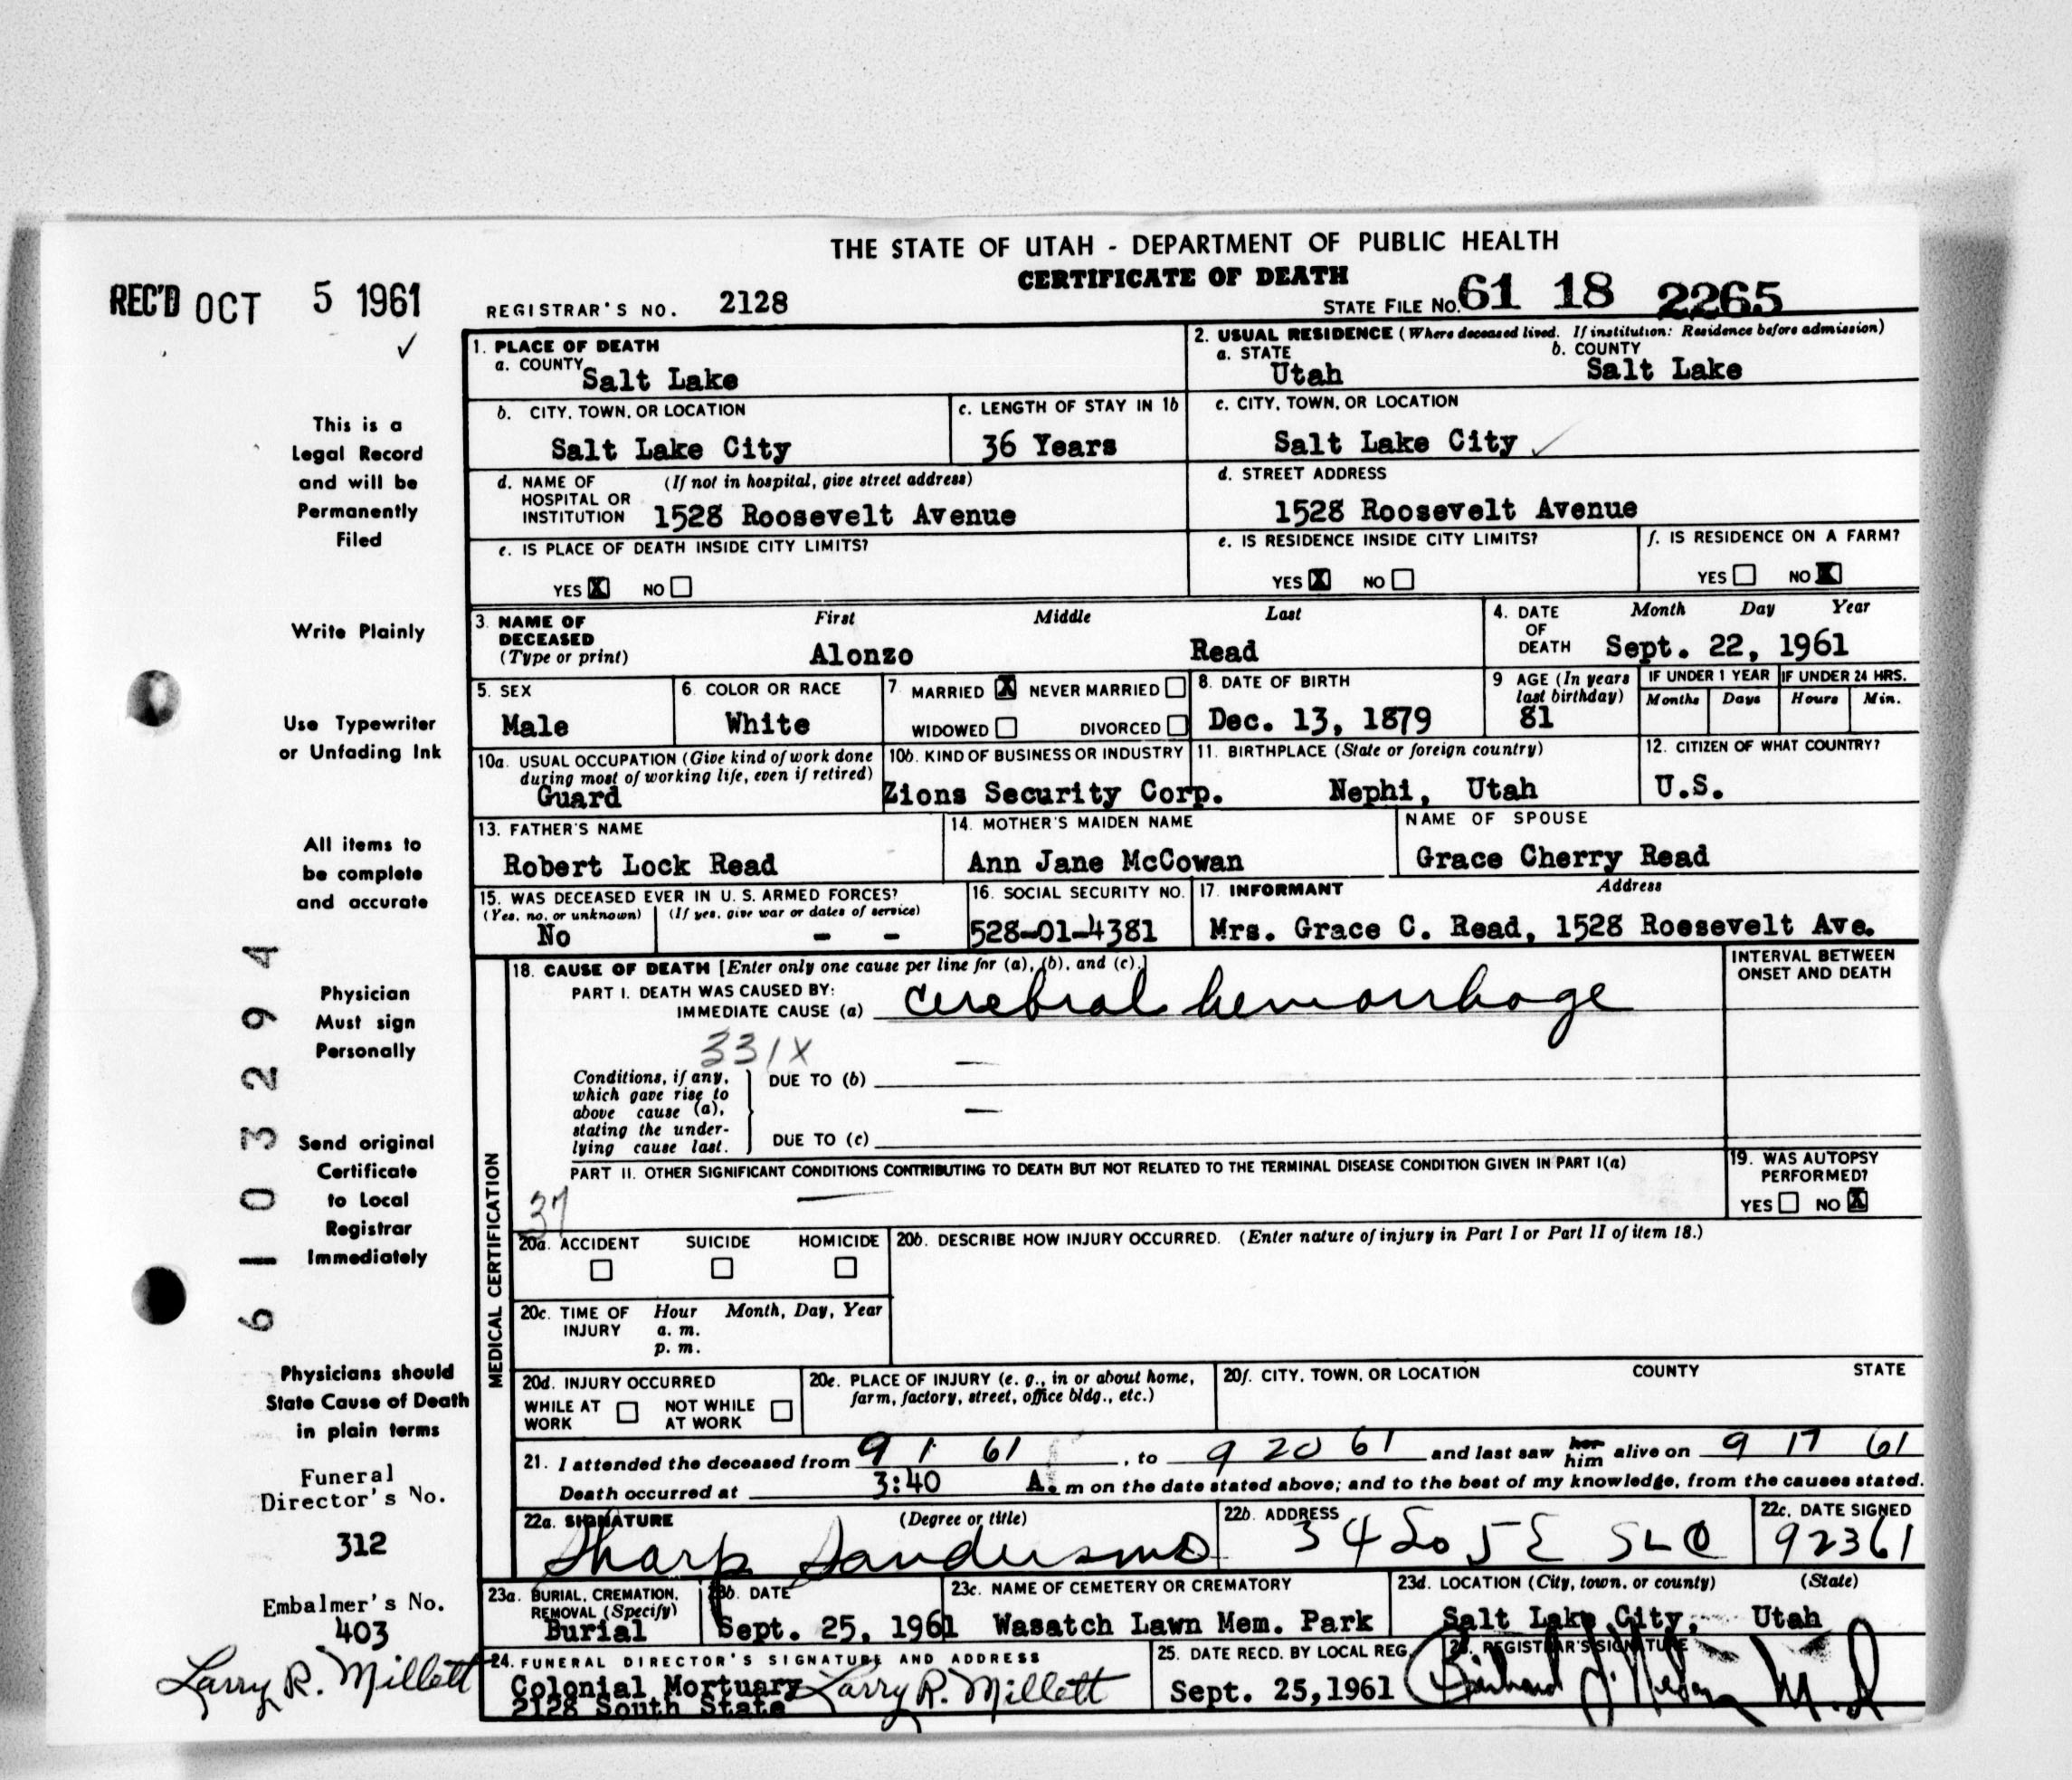 THE STATE OF UTAH - DEPARTMENT OF PUBLIC HEALTH
CERTIFICATE OF DEATH
REC'D OCT 5 1961
REGISTRAR'S NO. 2128
STATE FILE NO. 61 18 2265
This is a
Legal Record
and will be
Permanently
Filed
Write Plainly
Use Typewriter
or Unfading Ink
All items to
be complete
and accurate
Physician
Must sign
Personally
Send original
Certificate
to Local
Registrar
Immediately
Physicians should
State Cause of Death
in plain terms
Funeral
Director's No.
312
Embalmer's No.
403
Larry R. Millett
61 03294
1. PLACE OF DEATH
a. COUNTY
Salt Lake
2. USUAL RESIDENCE (Where deceased lived. If institution: Residence before admission)
a. STATE b. COUNTY
Utah Salt Lake
b. CITY, TOWN, OR LOCATION
Salt Lake City
c. LENGTH OF STAY IN 1b
36 Years
c. CITY, TOWN, OR LOCATION
Salt Lake City
d. NAME OF (If not in hospital, give street address)
HOSPITAL OR
INSTITUTION 1528 Roosevelt Avenue
d. STREET ADDRESS
1528 Roosevelt Avenue
e. IS PLACE OF DEATH INSIDE CITY LIMITS?
YES X NO
e. IS RESIDENCE INSIDE CITY LIMITS?
YES X NO
f. IS RESIDENCE ON A FARM?
YES NO X
3. NAME OF First Middle Last
DECEASED
(Type or print) Alonzo Read
4. DATE Month Day Year
OF
DEATH Sept. 22, 1961
5. SEX
Male
6. COLOR OR RACE
White
7. MARRIED X NEVER MARRIED
WIDOWED DIVORCED
8. DATE OF BIRTH
Dec. 13, 1879
9 AGE (In years
last birthday)
81
IF UNDER 1 YEAR
Months Days
IF UNDER 24 HRS.
Hours Min.
10a. USUAL OCCUPATION (Give kind of work done
during most of working life, even if retired)
Guard
10b. KIND OF BUSINESS OR INDUSTRY
Zions Security Corp.
11. BIRTHPLACE (State or foreign country)
Nephi, Utah
12. CITIZEN OF WHAT COUNTRY?
U.S.
13. FATHER'S NAME
Robert Lock Read
14. MOTHER'S MAIDEN NAME
Ann Jane McCowan
NAME OF SPOUSE
Grace Cherry Read
15. WAS DECEASED EVER IN U. S. ARMED FORCES?
(Yes, no, or unknown) (If yes, give war or dates of service)
No - -
16. SOCIAL SECURITY NO.
528-01-4381
17. INFORMANT Address
Mrs. Grace C. Read, 1528 Roesevelt Ave.
MEDICAL CERTIFICATION
18. CAUSE OF DEATH [Enter only one cause per line for (a), (b), and (c).]
PART I. DEATH WAS CAUSED BY:
IMMEDIATE CAUSE (a) cerebral hemorrhage
331X
INTERVAL BETWEEN
ONSET AND DEATH
Conditions, if any,
which gave rise to
above cause (a),
stating the under-
lying cause last.
DUE TO (b) —
DUE TO (c) —
PART II. OTHER SIGNIFICANT CONDITIONS CONTRIBUTING TO DEATH BUT NOT RELATED TO THE TERMINAL DISEASE CONDITION GIVEN IN PART I(a)
37 —
19. WAS AUTOPSY
PERFORMED?
YES NO X
20a. ACCIDENT SUICIDE HOMICIDE
20b. DESCRIBE HOW INJURY OCCURRED. (Enter nature of injury in Part I or Part II of item 18.)
20c. TIME OF Hour Month, Day, Year
INJURY a. m.
p. m.
20d. INJURY OCCURRED
WHILE AT NOT WHILE
WORK AT WORK
20e. PLACE OF INJURY (e. g., in or about home,
farm, factory, street, office bldg., etc.)
20f. CITY, TOWN, OR LOCATION COUNTY STATE
21. I attended the deceased from 9 1 61, to 9 20 61 and last saw her him alive on 9 17 61
Death occurred at 3:40 A. m on the date stated above; and to the best of my knowledge, from the causes stated.
22a. SIGNATURE (Degree or title)
Sharp Sanders MD
22b. ADDRESS
34 So 5 E SLC
22c. DATE SIGNED
9 23 61
23a. BURIAL, CREMATION,
REMOVAL (Specify)
Burial
23b. DATE
Sept. 25, 1961
23c. NAME OF CEMETERY OR CREMATORY
Wasatch Lawn Mem. Park
23d. LOCATION (City, town, or county) (State)
Salt Lake City, Utah
24. FUNERAL DIRECTOR'S SIGNATURE AND ADDRESS
Colonial Mortuary Larry R. Millett
2128 South State
25. DATE RECD. BY LOCAL REG.
Sept. 25,1961
26. REGISTRAR'S SIGNATURE
M.D